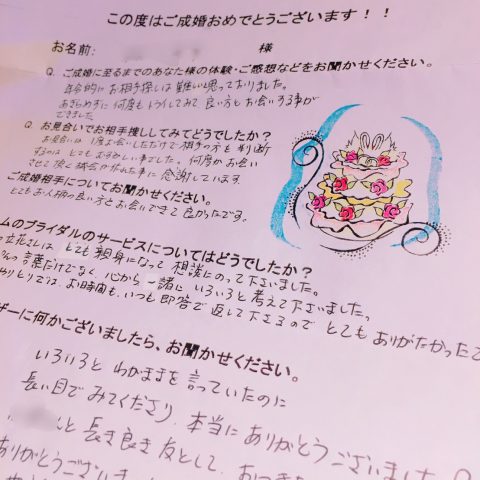 この度はご成婚おめでとうございます！！
お名前: 様
Q. ご成婚に至るまでのあなた様の体験・ご感想などをお聞かせください。
年令的に お相手探しは難しいと思っておりました。
あきらめずに何度もトライしてみて良い方とお会いする事が
できました。
Q. お見合いでお相手捜ししてみてどうでしたか？
お見合いは 1度お会いしただけで相手の方を判断
するのは とてもむずかしいました。何度かお会い
させて頂く機会が作れた事に 感謝しています
ご成婚相手についてお聞かせください。
とてもお人柄の良い方とお会いできて良かったです。
ムのブライダルのサービスについてはどうでしたか？
立花さんは とても親身になって 相談にのって下さいました。
言葉だけでなく 心から 一諸に いろいろと考えて下さいました。
やりとりでは、お時間も、いつも即答で 返して下さるので とても ありがたかったで
ザーに何かございましたら、お聞かせください。
いろいろと わがままを言っていたのに
長い目で みてくださり、本当に ありがとうございました
んと 長き良き 友として、
ありがとうございま